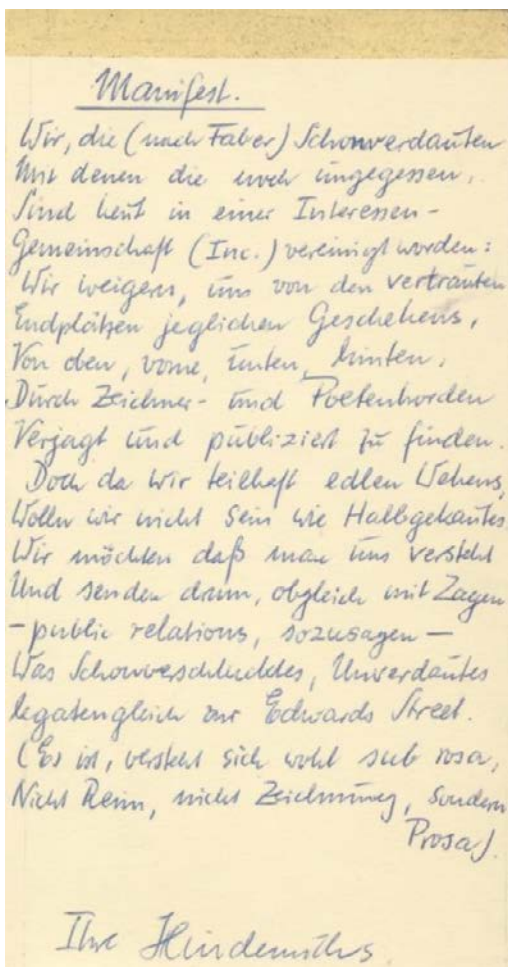 Manifest.
Wir, die (nach Faber) Schonverdauten
Mit denen die noch ungegessen,
Sind heut in einer Interessen-
Gemeinschaft (Inc.) vereinigt worden:
Wir weigern, uns von den vertrauten
Endplätzen jeglichen Geschehens,
Von oben, vorne, unten, hinten,
Durch Zeichner- und Poetenhorden
Verjagt und publiziert zu finden.
Doch da wir teilhaft edlen Wehens,
Wollen wir nicht sein wie Halbgekautes
Wir möchten daß man uns versteht
Und senden drum, obgleich mit Zagen
- public relations, sozusagen -
Was Schonverschlucktes, Unverdautes
legatengleich zur Edwards Street.
(Es ist, versteht sich wohl sub rosa,
Nicht Reim, nicht Zeichnung, sondern
Prosa).
Ihre Hindemiths